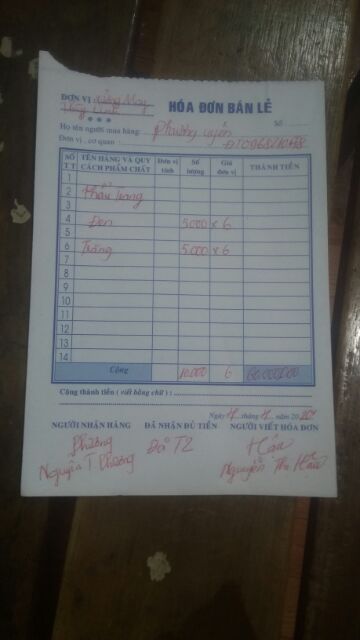 ĐƠN VỊ Xưởng May
Thùy Linh
HÓA ĐƠN BÁN LẺ
Số
Họ tên người mua hàng: Phương Uyên
Đơn vị, cơ quan:
SỐ TT TÊN HÀNG VÀ QUY CÁCH PHẨM CHẤT Đơn vị tính Số lượng Giá đơn vị THÀNH TIỀN
1
2
3
4 Đen 5.000 x 6
5
6 Trắng 5.000 x 6
7
8
9
10
11
12
13
14
Cộng 10.000 6 60.000.000
Cộng thành tiền ( viết bằng chữ ) :
Ngày tháng năm 20
NGƯỜI NHẬN HÀNG ĐÃ NHẬN ĐỦ TIỀN NGƯỜI VIẾT HÓA ĐƠN
Phương Đã T2 Hậu
Nguyễn T Phương Nguyễn Thị Hậu